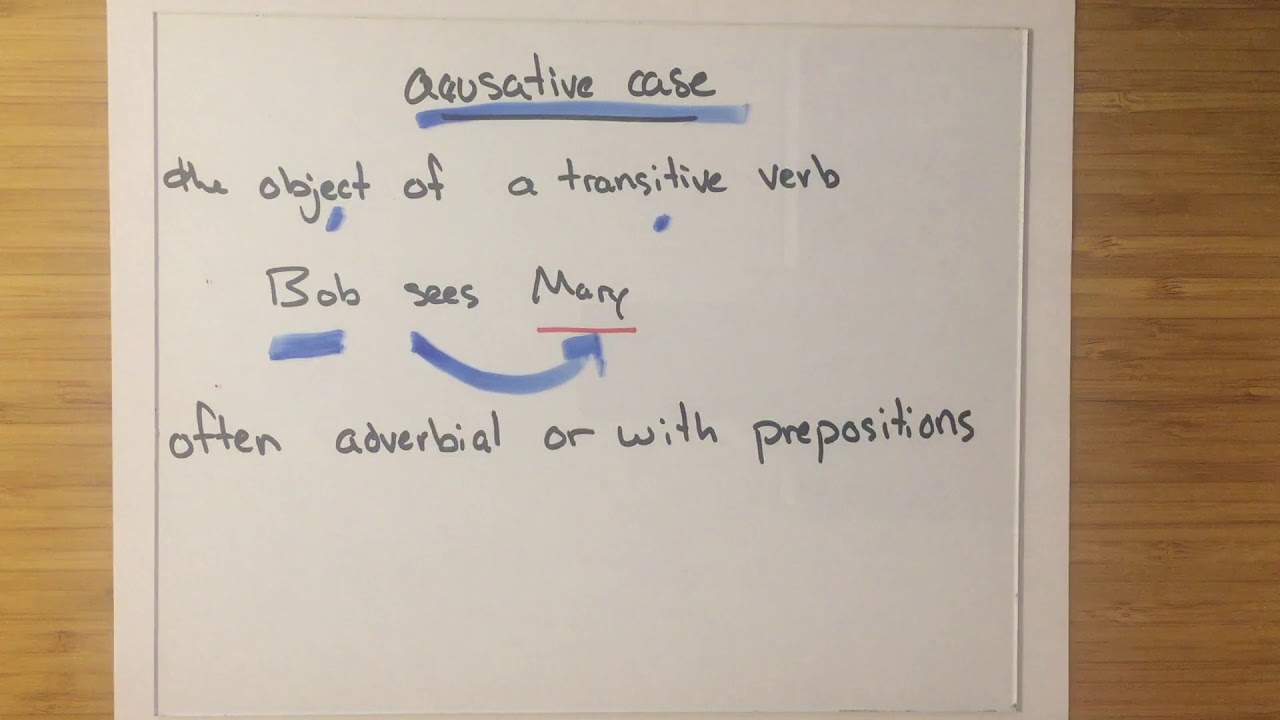 accusative case
the object of a transitive verb
Bob sees Mary
often adverbial or with prepositions